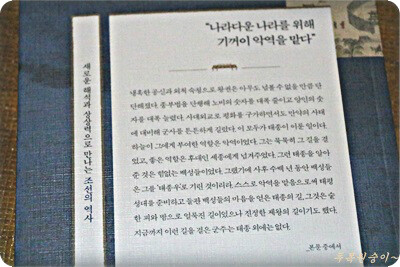 새로운 해석과 상상력으로 만나는 조선의 역사
“나라다운 나라를 위해
기꺼이 악역을 맡다”
냉혹한 공신과 외척 숙청으로 왕권은 아무도 넘볼 수 없을 만큼 단
단해졌다. 종부법을 단행해 노비의 숫자를 대폭 줄이고 양인의 숫
자를 대폭 늘렸다. 사대외교로 평화를 구가하면서도 만약의 사태
에 대비해 군사를 튼튼하게 길렀다. 이 모두가 태종이 이룬 일이다.
하늘이 그에게 부여한 역할은 악역이었다. 그는 묵묵히 그 길을 걸
었고, 좋은 역할은 후대인 세종에게 넘겨주었다. 그런 태종을 알아
준 것은 힘없는 백성들이었다. 그랬기에 사후 수백 년 동안 백성들
은 그를 ‘태종우’로 기린 것이리라. 스스로 악역을 맡음으로써 태평
성대를 준비하고 돌판 백성들의 마음을 얻은 태종의 길, 그것은 숱
한 피와 땀으로 얼룩진 길이었으나 진정한 제왕의 길이기도 했다.
지금까지 이런 길을 걸은 군주는 태종 외에는 없다.
_본문 중에서